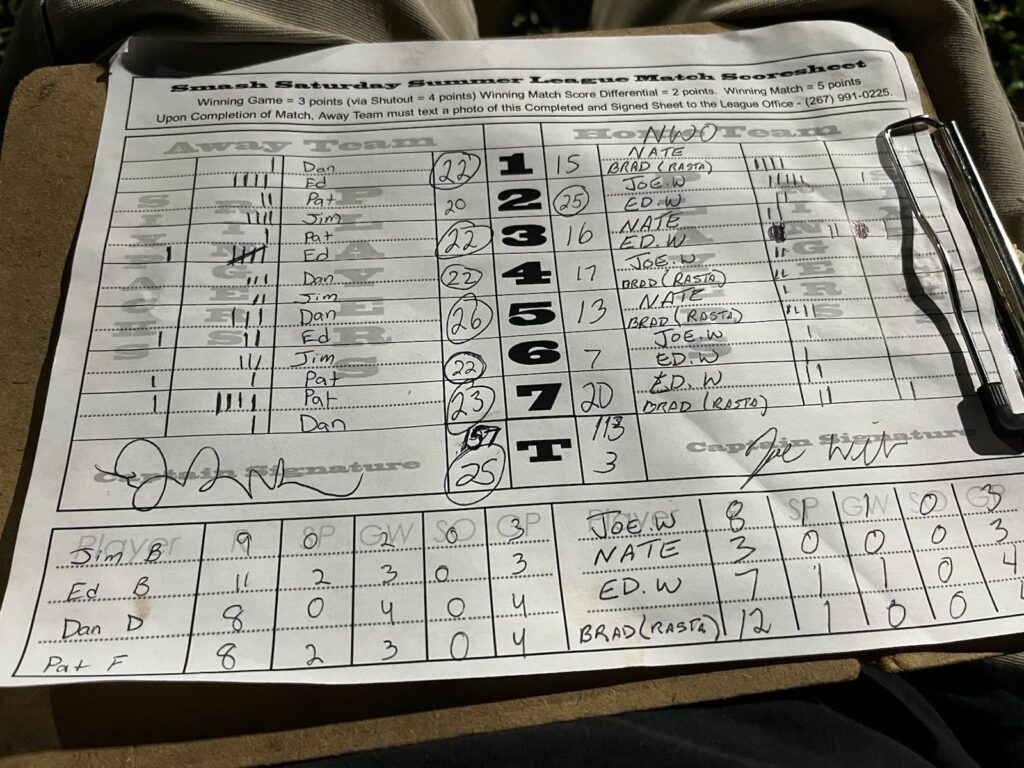 Smash Saturday Summer League Match Scoresheet
Winning Game = 3 points (via Shutout = 4 points) Winning Match Score Differential = 2 points. Winning Match = 5 points
Upon Completion of Match, Away Team must text a photo of this Completed and Signed Sheet to the League Office - (267) 991-0225.
Away Team Home Team NWO
Dan 22 1 15 NATE
Ed BRAD (RASTA)
Pat 20 2 25 JOE.W
Jim ED.W
Pat 22 3 16 NATE
Ed ED.W
Dan 22 4 17 JOE.W
Jim BRAD (RASTA)
Dan 26 5 13 NATE
Ed BRAD (RASTA)
Jim 22 6 7 JOE.W
Pat ED.W
Pat 23 7 20 ED.W
Dan BRAD (RASTA)
SIXPACKS RINGERS PLAYERS
157 T 113
25 3
Captain Signature Captain Signature
Joe Wit
Player R SP GW SO GP Player R SP GW SO GP
Jim B 9 0 2 0 3 JOE.W 8 1 1 0 3
Ed B 11 2 3 0 3 NATE 3 0 0 0 3
Dan D 8 0 4 0 4 ED.W 7 1 1 0 4
Pat F 8 2 3 0 4 BRAD (RASTA) 12 1 0 0